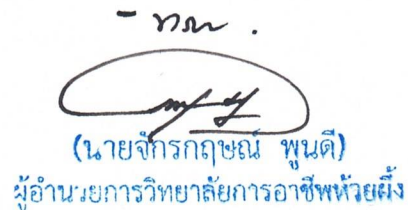 - ทราบ .
(นายจักรกฤษณ์ พูนดี)
ผู้อำนวยการวิทยาลัยการอาชีพห้วยผึ้ง